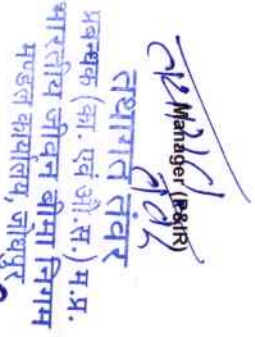 Manager (P&IR)
तथागत तंवर
प्रबन्धक (का. एवं औ.स.) म.प्र.
भारतीय जीवन बीमा निगम
मण्डल कार्यालय, जोधपुर